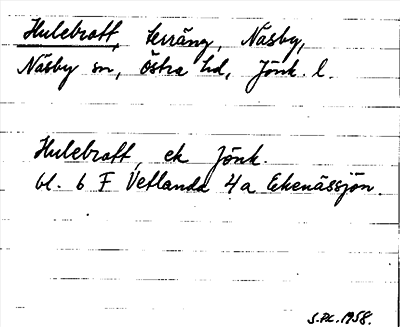 Hulebratt, terräng, Näsby,
Näsby sn, Östra hd, Jönk. l.
Hulebratt, ek Jönk.
bl. 6 F Vetlanda 4a Ekenässjön.
1958.